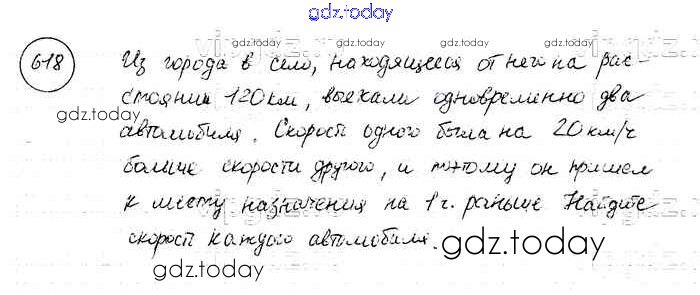 gdz.today
618 Из города в село, находящееся от него на рас-
стоянии 120 км, выехали одновременно два
автомобиля. Скорость одного была на 20 км/ч
больше скорости другого, и поэтому он пришел
к месту назначения на 1 ч. раньше Найдите
скорость каждого автомобиля.
gdz.today
gdz.today
gdz.today
gdz.today
gdz.today
gdz.today
gdz.today